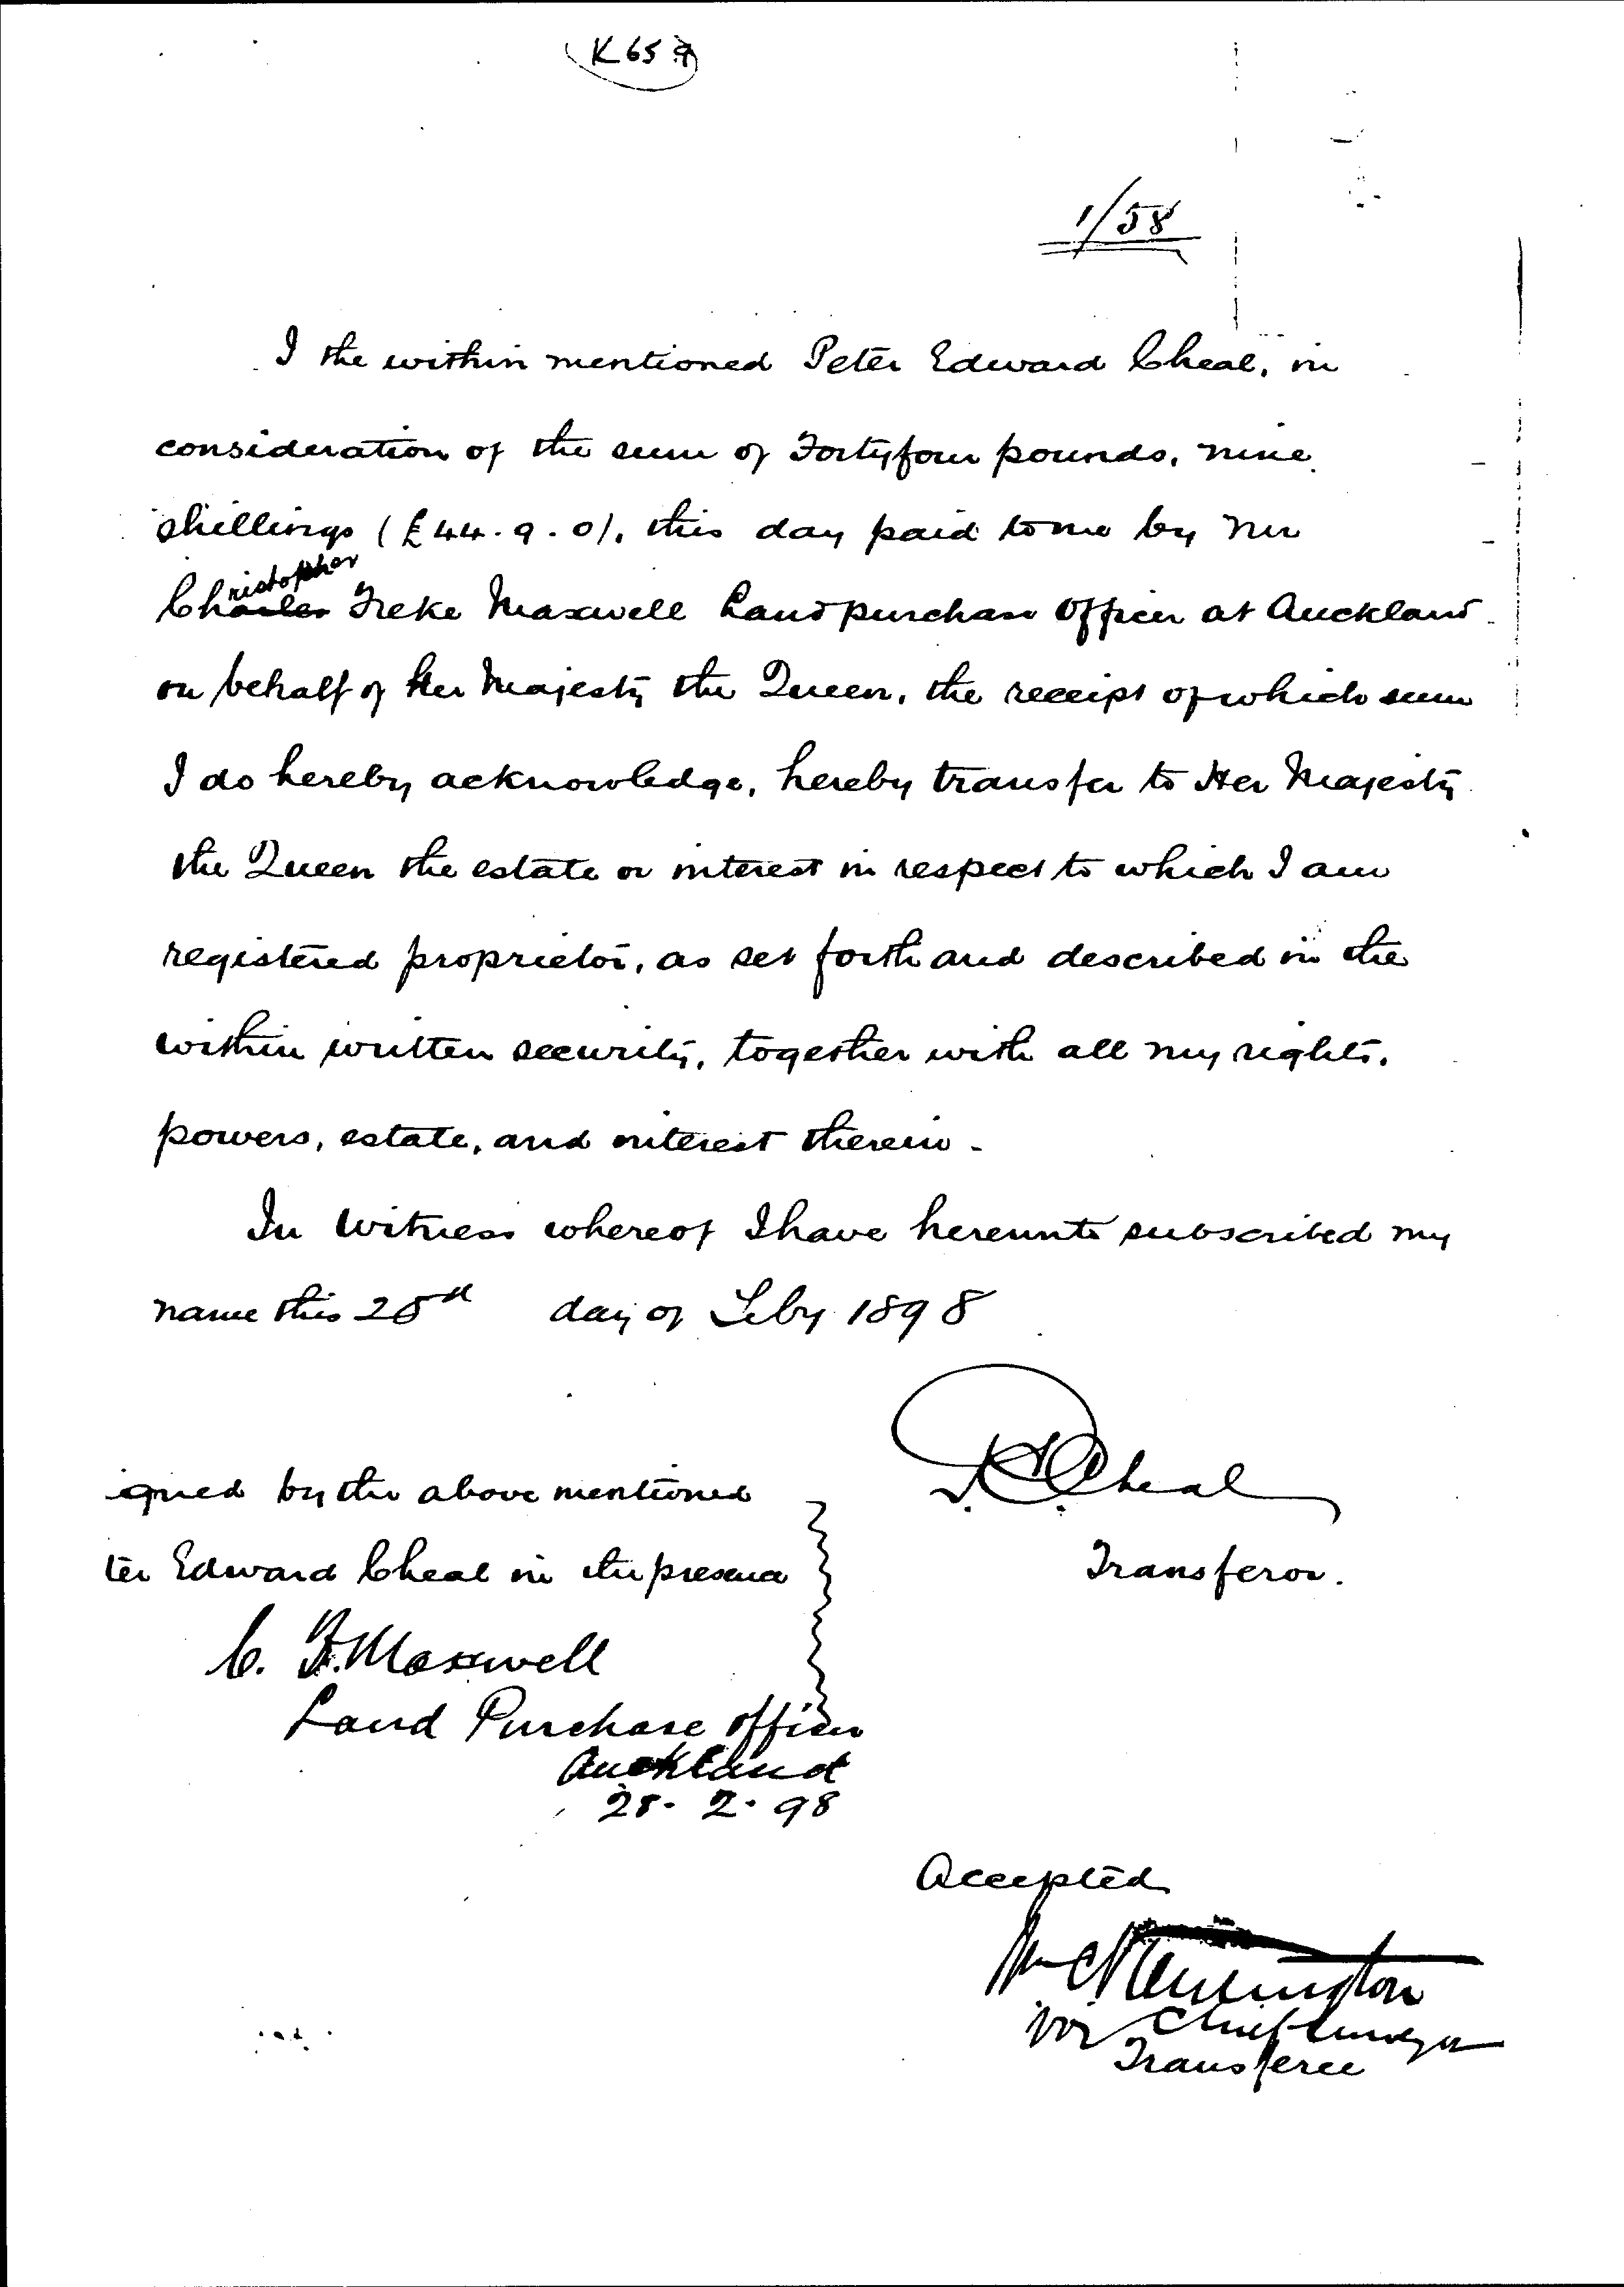 K 65
1/58
I the within mentioned Peter Edward Cheal, in
consideration of the sum of Fortyfour pounds, nine
shillings (£44.9.0), this day paid to me by Mr
ristopher
Charles Freke Maxwell Land purchase Officer at Auckland
on behalf of Her Majesty the Queen, the receipt of which sum
I do hereby acknowledge, hereby transfer to Her Majesty
the Queen the estate or interest in respect to which I am
registered proprietor, as set forth and described in the
within written security, together with all my rights,
powers, estate, and interest therein -
In Witness whereof I have hereunto subscribed my
name this 28th day of Feby 1898
P.E. Cheal
igned by the above mentioned
ter Edward Cheal in the presence
Transferor.
C. F. Maxwell
Land Purchase Officer
Auckland
28. 2. 98
Accepted
Chief Surveyor
Transferee